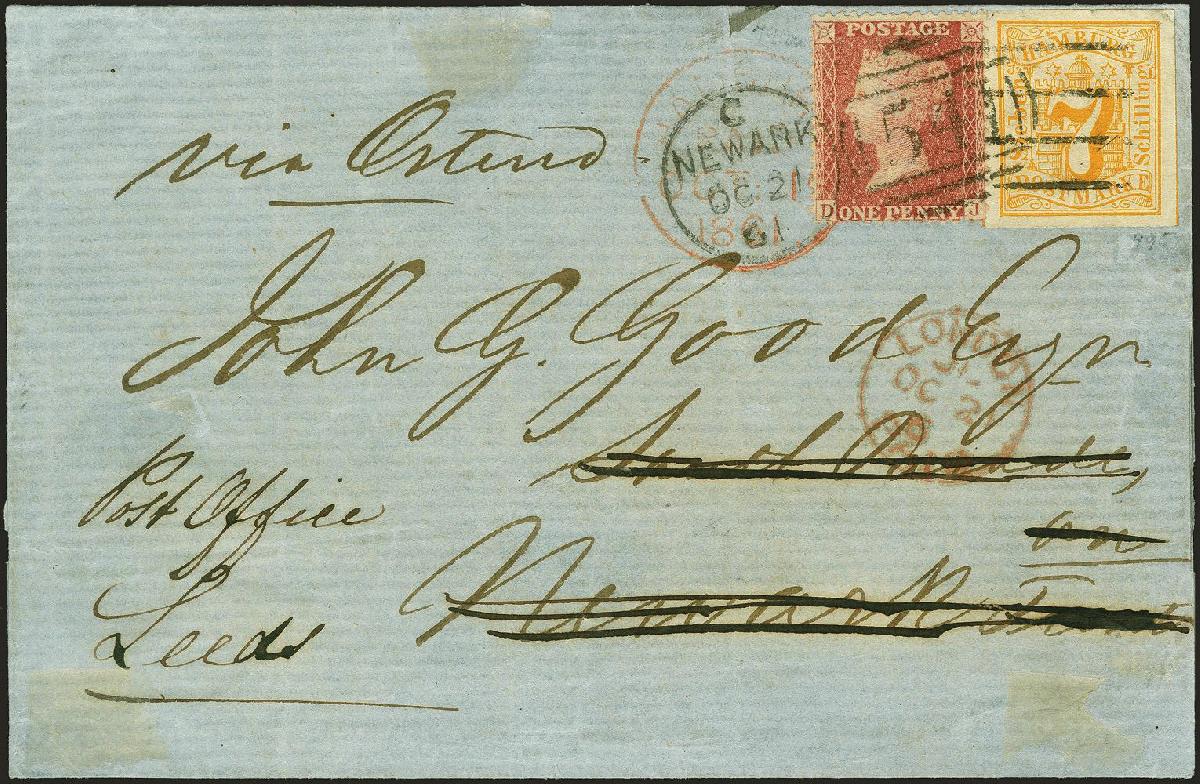 via Ostend
POSTAGE
D ONE PENNY J
HAMBURG
7
Schilling
POSTMARKE
C
NEWARK
OC 21
61
1861
541
John G. Good Esqr
South Parade,
on
Newark Trent
LONDON
OC 2
PAID
Post Office
Leeds